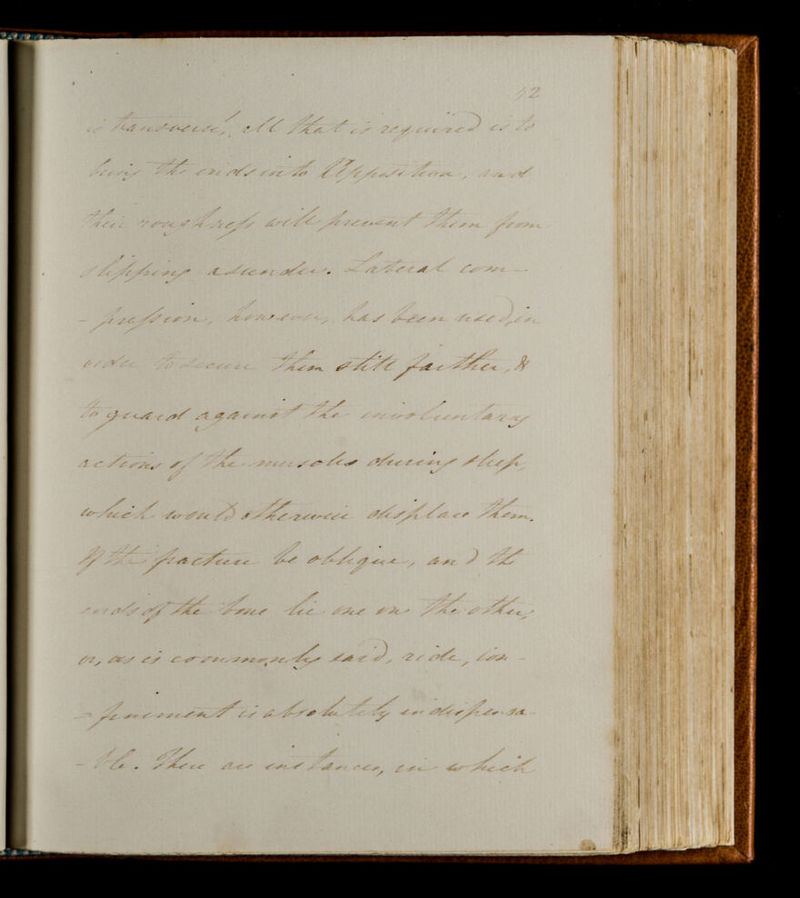 42
is transverse, all that is required is to
bring the ends into Apposition, and
their roughness will prevent them from
slipping asunder. Lateral com-
-pression, however, has been used, in
order to secure them still farther, &
to guard against the involuntary
actions of the muscles during sleep,
which would otherwise displace them.
If the fracture be oblique, and the
ends of the bone lie one on the other,
or, as is commonly said, ride, con-
-finement is absolutely indispensa-
-ble. There are instances, in which